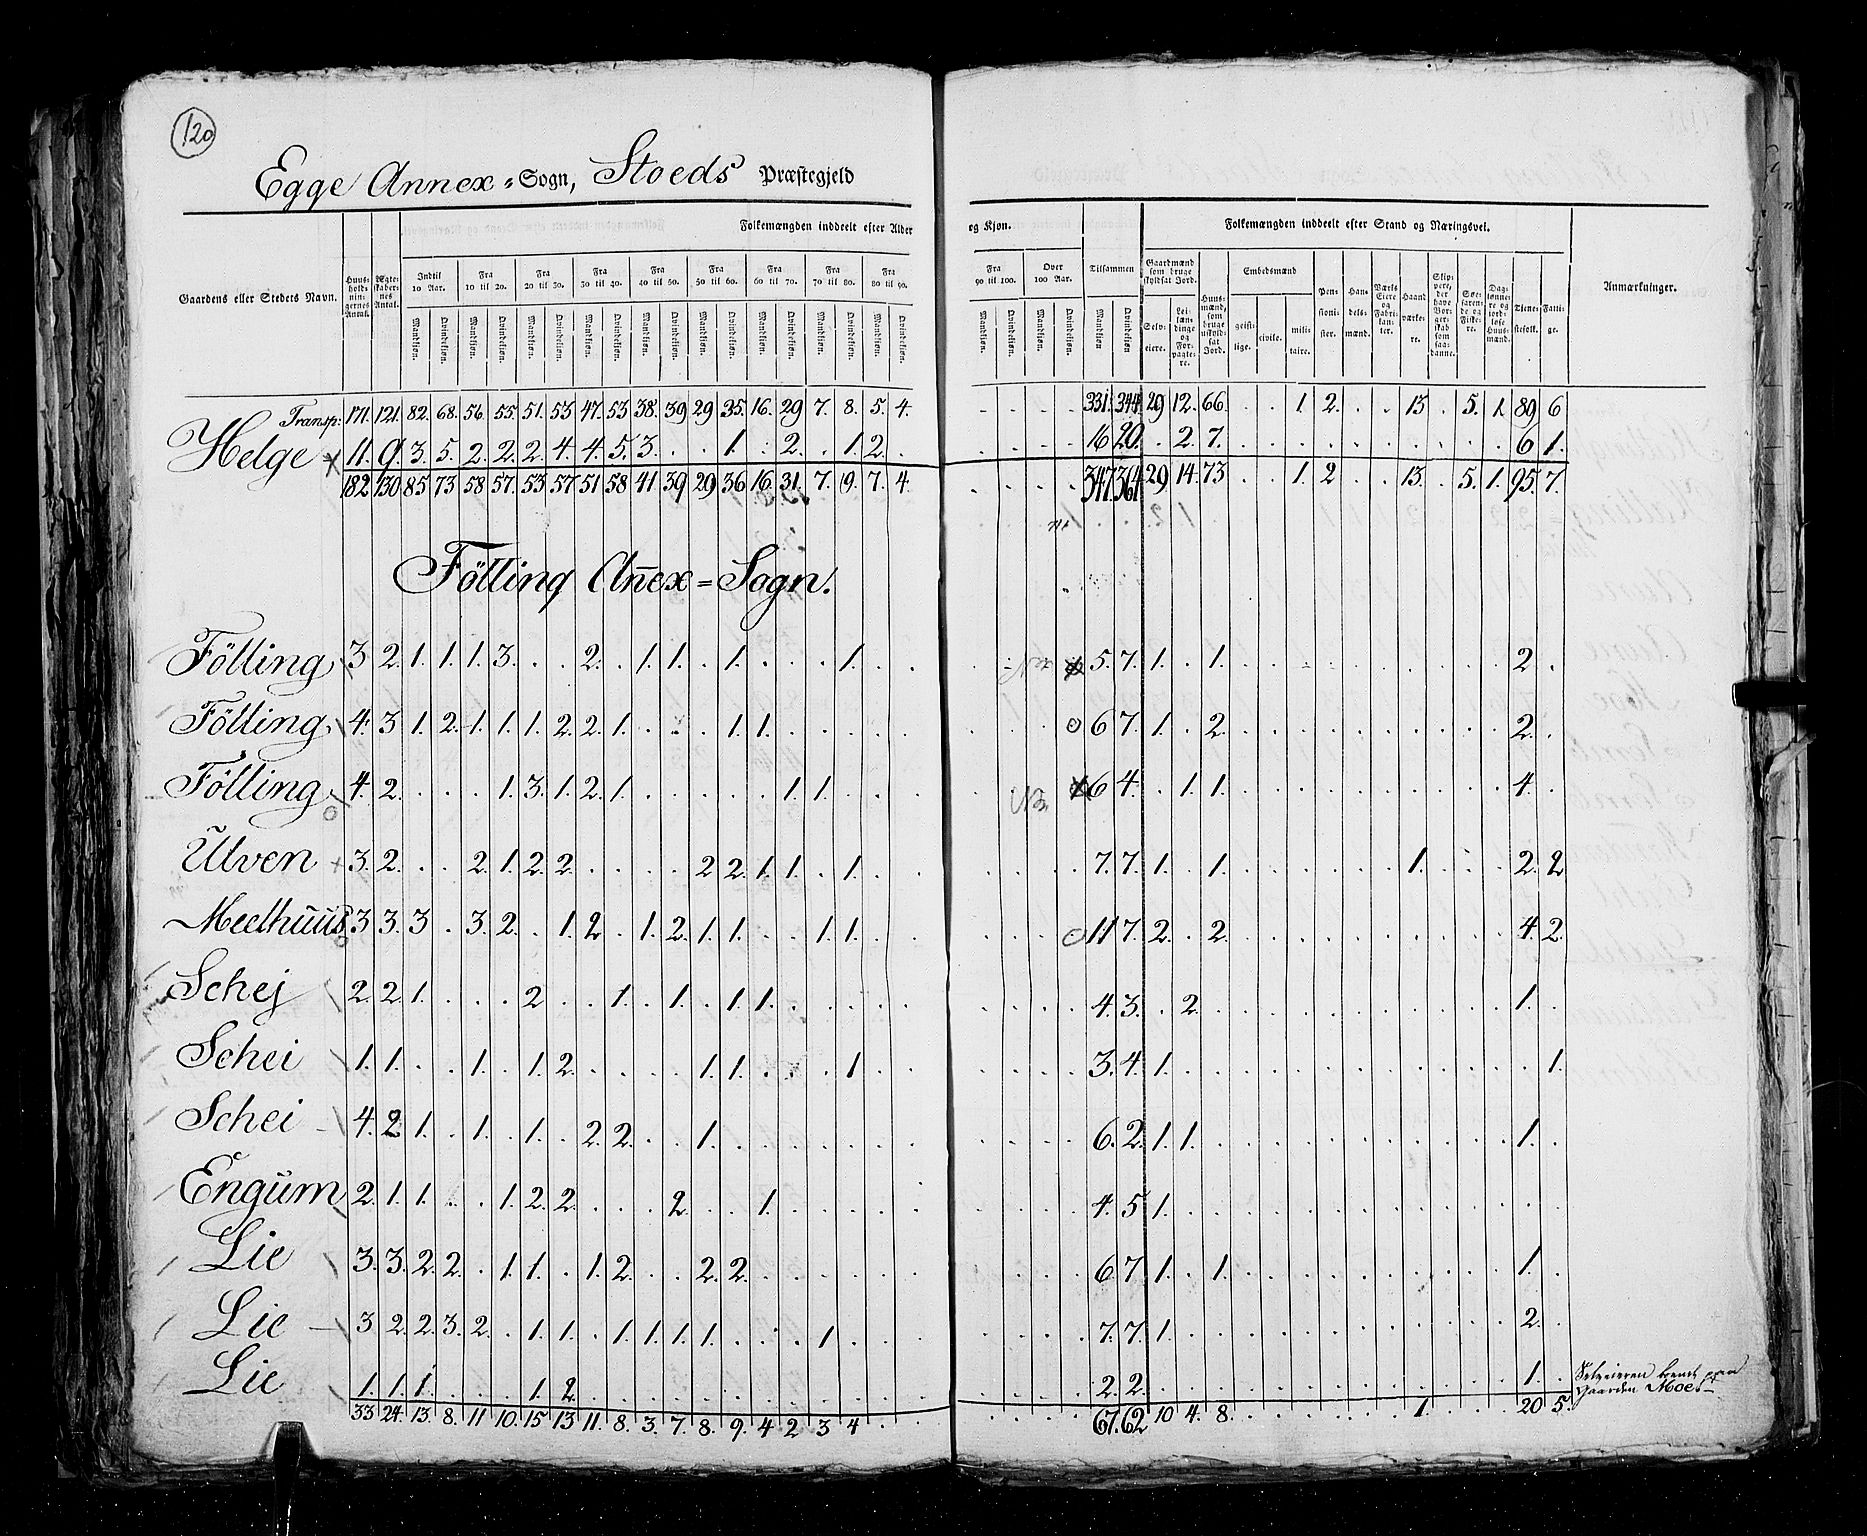 120
Egge Annex=Sogn, Stoeds Præstegjeld
Folkemængden inddeelt efter Alder og Kjøn.
Folkemængden inddeelt efter Stand og Næringsvei.
Gaardens eller Stedets Navn.
Huusholdningernes Antal.
Ægteskabernes Antal.
Indtil 10 Aar.
Fra 10 til 20.
Fra 20 til 30.
Fra 30 til 40.
Fra 40 til 50.
Fra 50 til 60.
Fra 60 til 70.
Fra 70 til 80.
Fra 80 til 90.
Fra 90 til 100.
Over 100 Aar.
Tilsammen
Mandkiøn. Qvindekiøn.
Gaardmænd som bruge skyldsat Jord.
Selveiere.
Leilændinge og Forpagtere.
Huusmænd, som bruge uskyldsat Jord.
Embedsmænd
geistlige. civile. militaire.
Pensionister.
Handelsmænd.
Værks Eiere og Fabrikanter.
Haandværkere.
Skippere, der have Borgerskab som saadanne.
Søefarende og Fiskere.
Daglønnere og jordløse Huusmænd.
Tjenestefolk.
Fattige.
Anmærkninger.
Transp: 171. 121. 82. 68. 56. 55. 51. 53 47. 53 38. 39 29 35. 16. 29 7. 8. 5. 4. 331. 344 29 12. 66. 1. 2. 13. 5. 1. 89 6
Helge 11. 9. 3. 5. 2. 2. 2. 4. 4. 5. 3. 1. 2. 1. 2. 16 20. 2. 7. 6 1.
182 130 85. 73 58 57. 53. 57 51 58 41 39 29 36 16. 31. 7. 9. 7. 4. 347 364 29 14. 73 1. 2 13. 5. 1. 95. 7.
Fölling Añex=Sogn.
Fölling 3 2. 1. 1. 1. 3. 2. 1. 1. 1. 1. 5. 7. 1. 1. 2
Fölling 4. 3 1. 2. 1. 1. 1. 2. 2. 1. 1. 1. 6 7. 1. 2. 2.
Fölling 4. 2. 1. 3. 1. 2. 1. 1. 1. 6 4. 1. 1. 4.
Ulven 3. 2. 2. 1. 2. 2. 2 2. 1. 1. 1. 7. 7. 1. 1. 1. 2. 2
Meelhuus 3 3. 3 3. 2. 1. 2 1. 2. 1. 1. 1. 1. 11 7. 2. 2. 4. 2.
Schej 2. 2. 1. 2 1. 1. 1. 1. 4. 3. 2. 1.
Schei 1. 1. 1. 1. 2. 1. 1. 1 3. 4. 1. 1.
Schei 4. 2 1. 1. 1. 2. 2. 1. 6. 2. 1. 1. 1.
Engum 2. 1. 1. 1. 2. 2. 2. 1. 4. 5 1.
Lie 3. 3. 2. 2. 1. 1. 1. 2. 2. 2. 6 7 1. 1. 1.
Lie 3 2. 2. 3. 2. 1. 1. 1. 1. 1. 1. 1 7. 7. 1. 2.
Lie 1. 1. 1. 1. 2. 2. 2. 1. Selveieren boende paa
Gaarden Moe.
33 24. 13. 8. 11 10. 15 13 11. 8. 3. 7. 8. 9. 4 2 3 4 67. 62 10 4. 8. 1. 20 5.